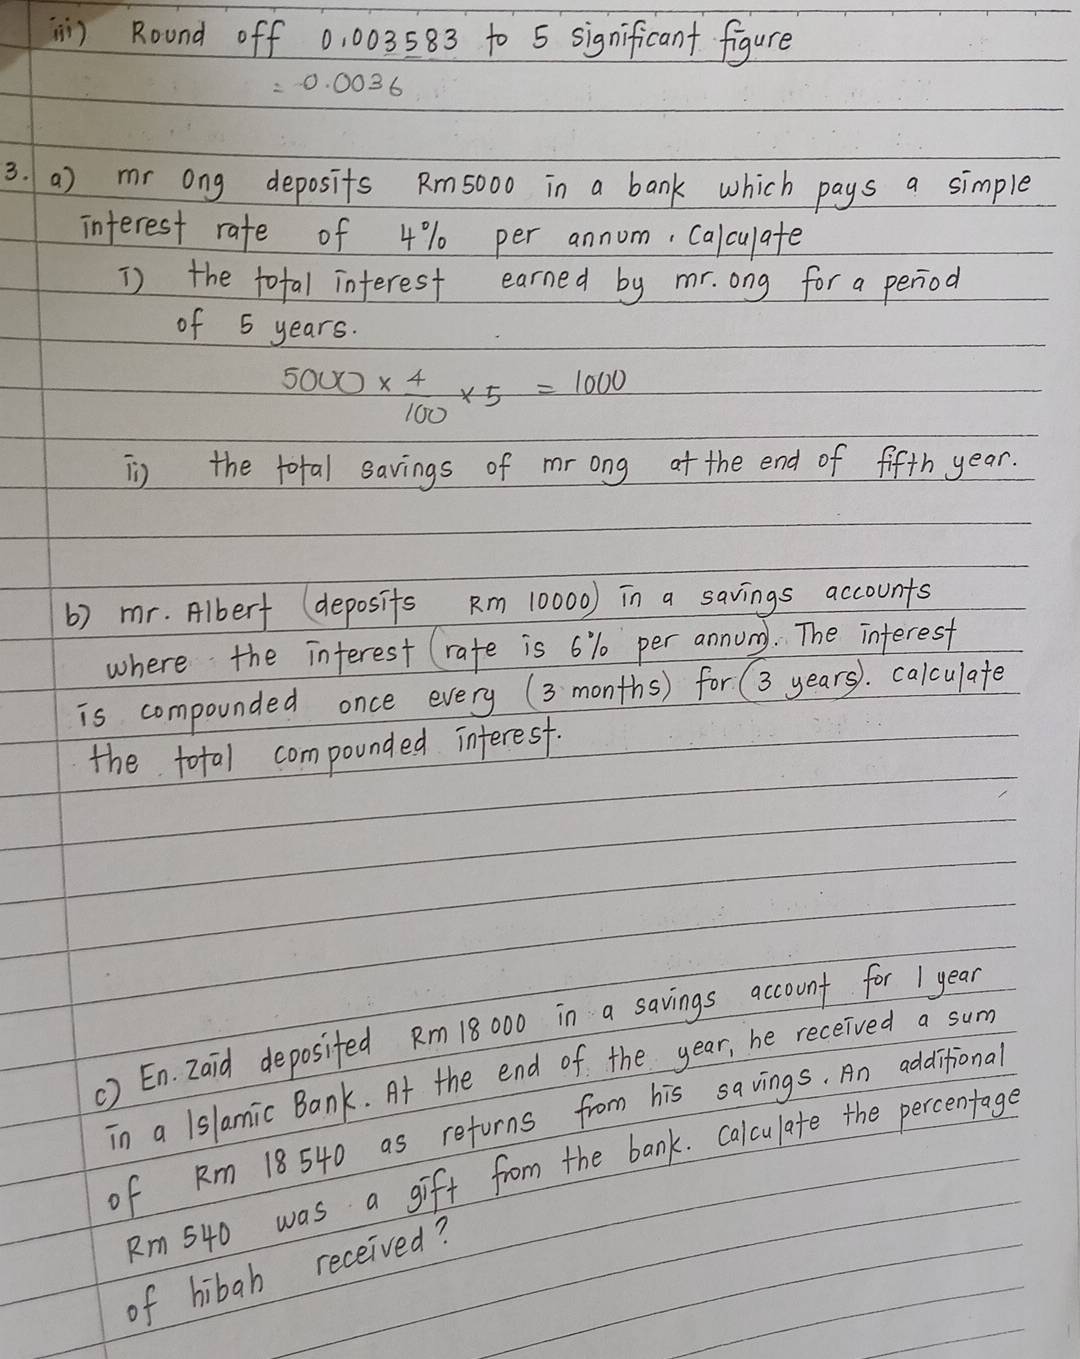 iii) Round off 0.003583 to 5 significant figure
= 0.0036
3. a) mr ong deposits Rm5000 in a bank which pays a simple
interest rate of 4% per annum. Calculate
i) the total interest earned by mr. ong for a period
of 5 years.
5000 × 4/100 × 5 = 1000
ii) the total savings of mr ong at the end of fifth year.
b) mr. Albert (deposits Rm 10000) in a savings accounts
where the interest (rate is 6% per annum). The interest
is compounded once every (3 months) for (3 years). calculate
the total compounded interest.
c) En. Zaid deposited Rm 18 000 in a savings account for 1 year
in a Islamic Bank. At the end of the year, he received a sum
of Rm 18 540 as returns from his savings. An additional
Rm 540 was a gift from the bank. Calculate the percentage
of hibah received?